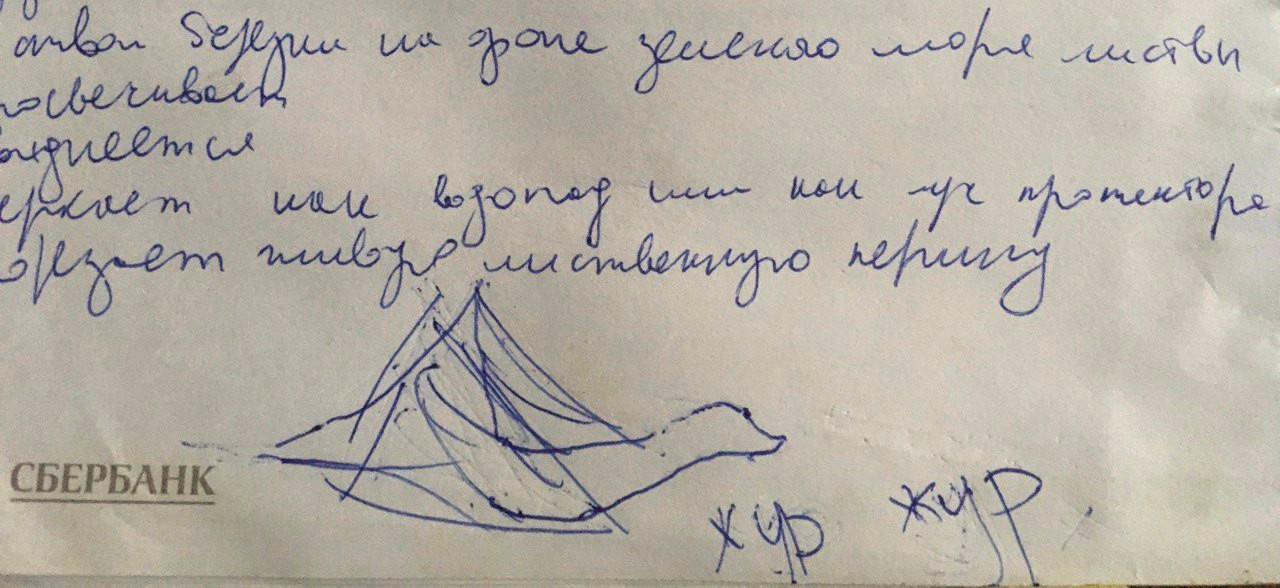 ствол березы на фоне зеленяо моря листвы
освечивает
однеется
еркает как водопад или как луч прожектора
орезает живую лиственную перину
СБЕРБАНК
жур жур